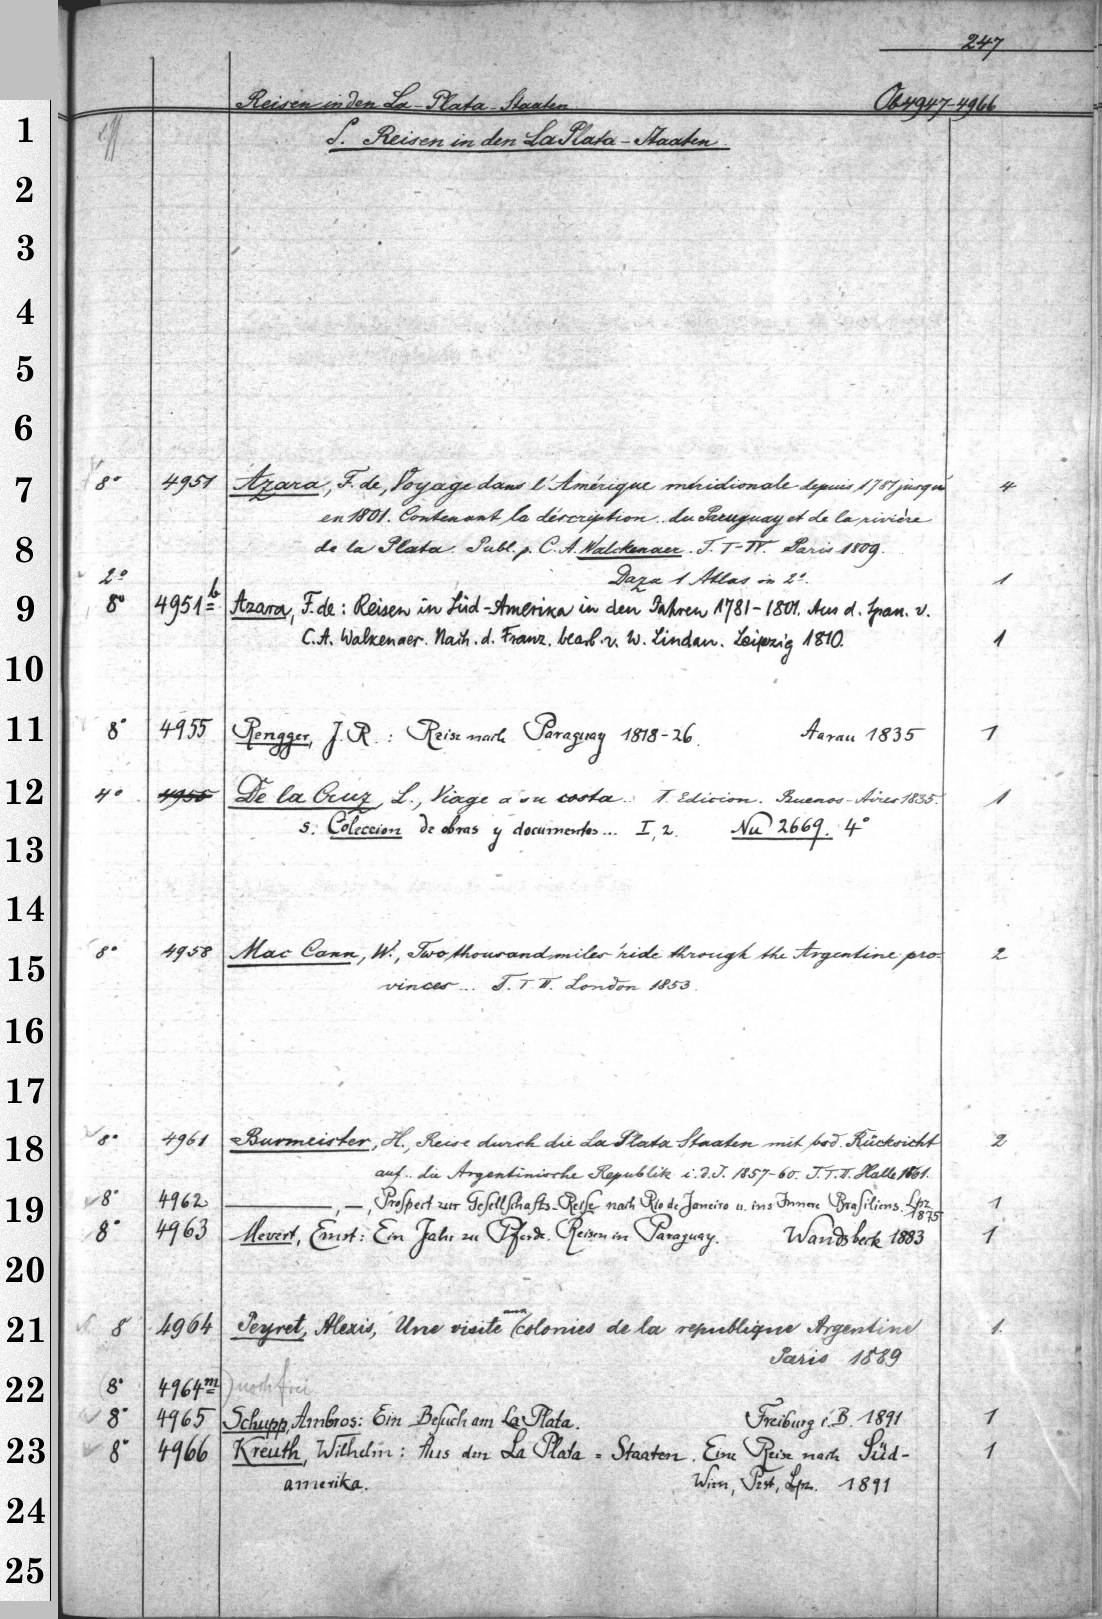 247
Reisen in den La-Plata-Staaten. Ob 4947-4966
1
S. Reisen in den La Plata-Staaten
2
3
4
5
6
7 8° 4951 Azara, F. de, Voyage dans l'Amérique méridionale depuis 1781 jusqu' 4
en 1801. Contenant la déscription.. du Paraguay et de la rivière
8 de la Plata. Publ. p. C. A. Walckenaer. T. I-IV. Paris 1809.
2° Dazu 1 Atlas in 2°. 1
9 8° 4951b Azara, F. de: Reisen in Süd-Amerika in den Jahren 1781-1801. Aus d. Span. v.
C. A. Walkenaer. Nach. d. Franz. bearb. v. W. Lindau. Leipzig 1810. 1
10
11 8° 4955 Rengger, J. R.: Reise nach Paraguay 1818-26. Aarau 1835 1
12 4° 4956 De la Cruz, L., Viage a su costa.. I. Edicion. Buenos-Aires 1835. 1
s. Coleccion de obras y documentos... I, 2. Nu 2669. 4°
13
14
15 8° 4958 Mac Cann, W., Two thousand miles' ride through the Argentine pro- 2
vinces... T. I II. London 1853.
16
17
18 8° 4961 Burmeister, H., Reise durch die La Plata Staaten mit bes. Rücksicht 2
auf.. die Argentinische Republik i. d. J. 1857-60. T. I. II. Halle 1861.
19 8° 4962 ———, —, Prospect zur Gesellschafts-Reise nach Rio de Janeiro u. ins Innere Brasiliens. Lpz. 1875 1
8° 4963 Mevert, Ernst: Ein Jahr zu Pferde. Reisen in Paraguay. Wandsbeck 1883 1
20
21 8 4964 Peyret, Alexis, Une visite aux colonies de la republique Argentine 1.
Paris 1889
22 8° 4964m noch frei
8° 4965 Schupp, Ambros: Ein Besuch am La Plata. Freiburg i. B. 1891 1
23 8° 4966 Kreuth, Wilhelm: Aus den La Plata=Staaten. Eine Reise nach Süd- 1
amerika. Wien, Pest, Lpz. 1891
24
25